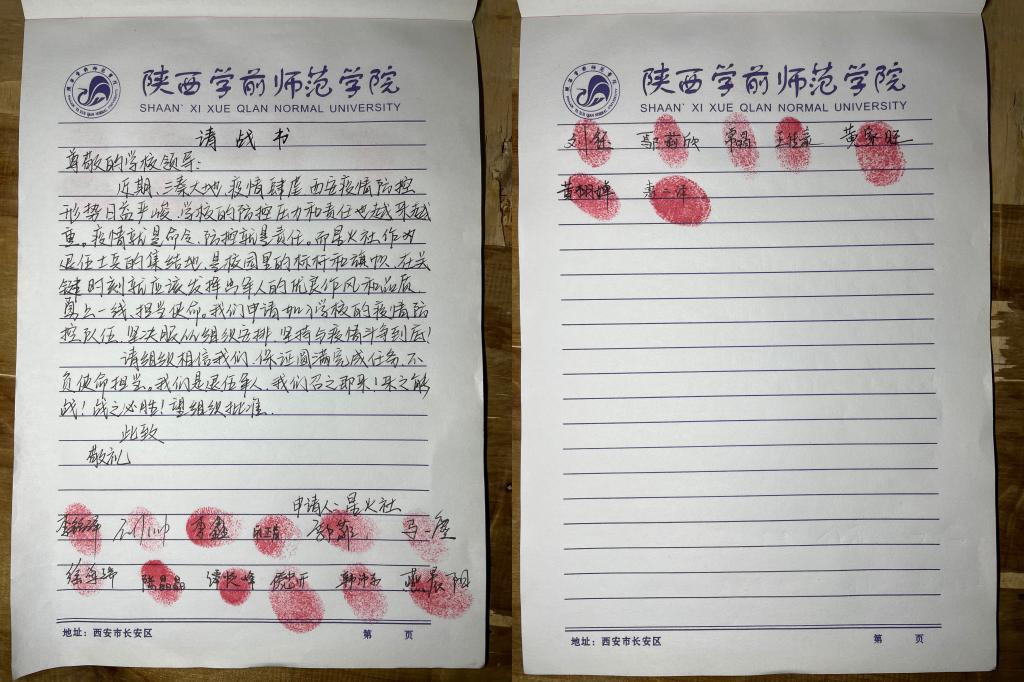 陕西学前师范学院
SHAAN' XI XUE QLAN NORMAL UNIVERSITY
请战书
尊敬的学校领导:
近期,三秦大地疫情肆虐,西安疫情防控
形势日益严峻,学校的防控压力和责任也越来越
重。疫情就是命令,防控就是责任。而星火社作为
退伍士兵的集结地,是校园里的标杆和旗帜,在关
键时刻就应该发挥出军人的优良作风和品质,
勇上一线,担当使命。我们申请加入学校的疫情防
控队伍,坚决服从组织安排,坚持与疫情斗争到底!
请组织相信我们,保证圆满完成任务,不
负使命担当。我们是退伍军人,我们召之即来!来之能
战!战之必胜!望组织批准。
此致
敬礼
申请人:星火社
李鑫 马一
陈晶晶 燕晨阳
地址:西安市长安区 第 页
陕西学前师范学院
SHAAN' XI XUE QLAN NORMAL UNIVERSITY
刘 黄
黄
地址:西安市长安区 第 页